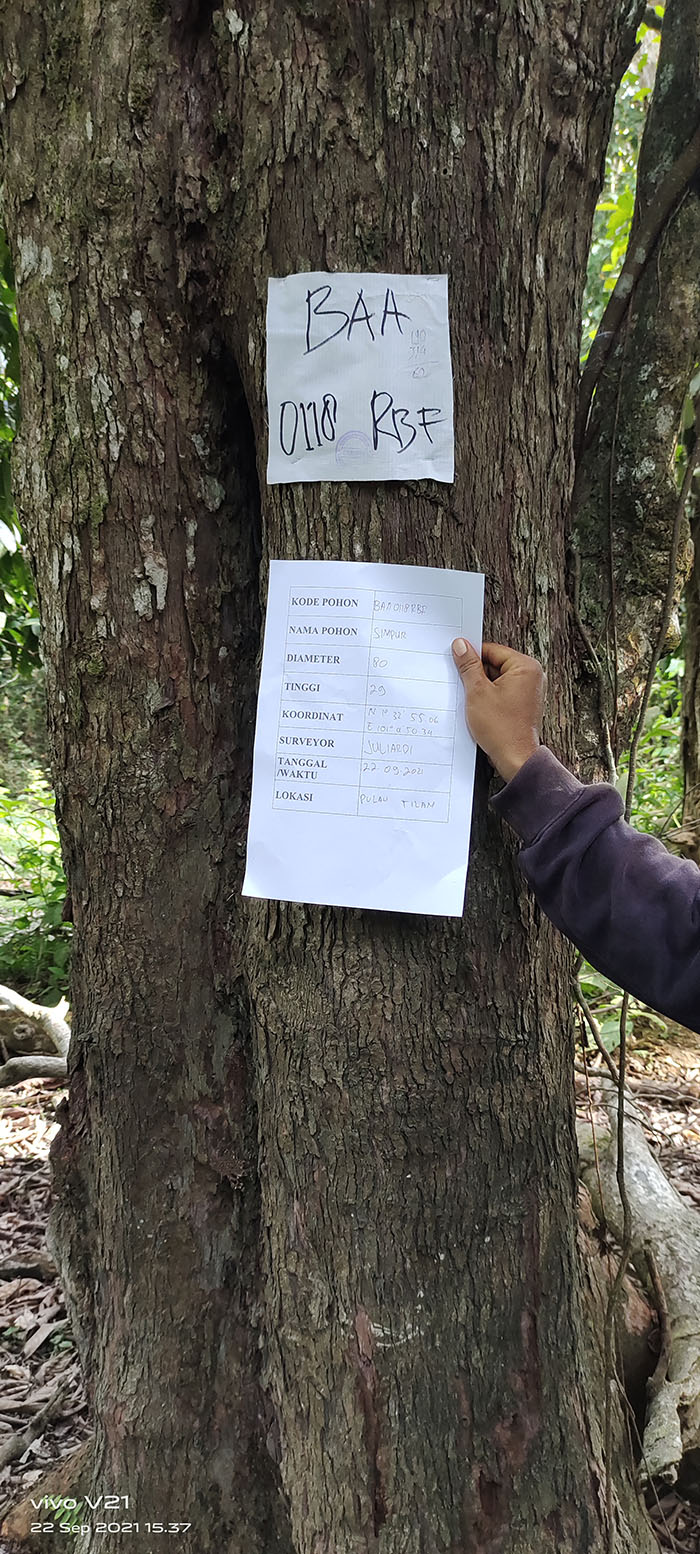 BAA
0118 RBF
KODE POHON BAA0118RBF
NAMA POHON SIMPUR
DIAMETER 80
TINGGI 29
KOORDINAT N 1° 32' 55.06
E 101°
SURVEYOR JULIARDI
TANGGAL 22 09.2021
/WAKTU
LOKASI PULAU TILAN
vivo V21
22 Sep 2021 15.37